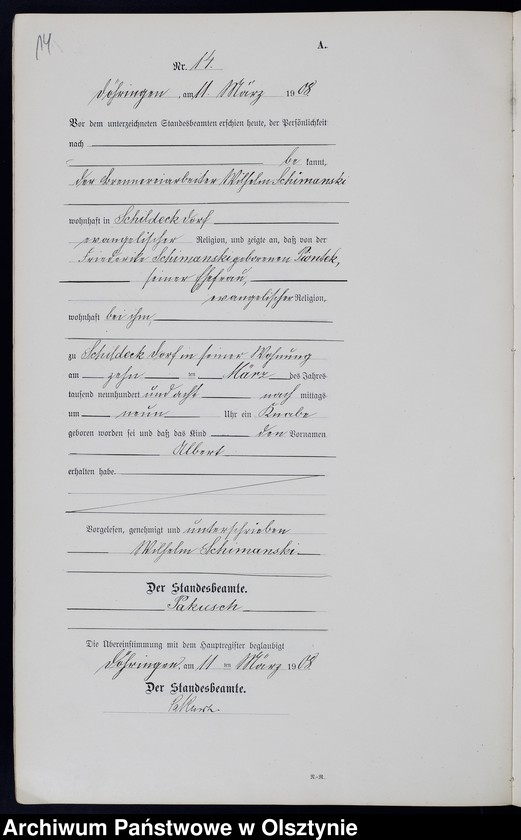 14
A.
Nr. 14.
Döhringen, am 11 März 1908
Vor dem unterzeichneten Standesbeamten erschien heute, der Persönlichkeit
nach
be kannt,
der Brennereiarbeiter Wilhelm Schimanski
wohnhaft in Schildeck Dorf
evangelischer Religion, und zeigte an, daß von der
Friederike Schimanski geborenen Piontek,
seiner Ehefrau,
evangelischer Religion,
wohnhaft bei ihm,
zu Schildeck Dorf in seiner Wohnung
am zehn ten März des Jahres
tausend neunhundert und acht nach mittags
um neun Uhr ein Knabe
geboren worden sei und daß das Kind den Vornamen
Albert
erhalten habe.
Vorgelesen, genehmigt und unterschrieben
Wilhelm Schimanski
Der Standesbeamte.
Pakusch
Die Übereinstimmung mit dem Hauptregister beglaubigt
Döhringen, am 11 ten März 1908
Der Standesbeamte.
R.-R.
Archiwum Państwowe w Olsztynie